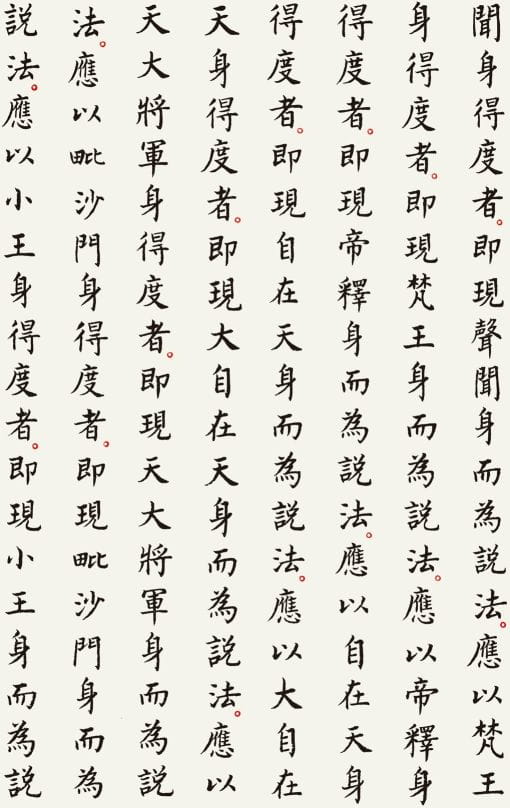 聞身得度者。即現聲聞身而為說法。應以梵王
身得度者。即現梵王身而為說法。應以帝釋身
得度者。即現帝釋身而為說法。應以自在天身
得度者。即現自在天身而為說法。應以大自在
天身得度者。即現大自在天身而為說法。應以
天大將軍身得度者。即現天大將軍身而為說
法。應以毗沙門身得度者。即現毗沙門身而為
說法。應以小王身得度者。即現小王身而為說